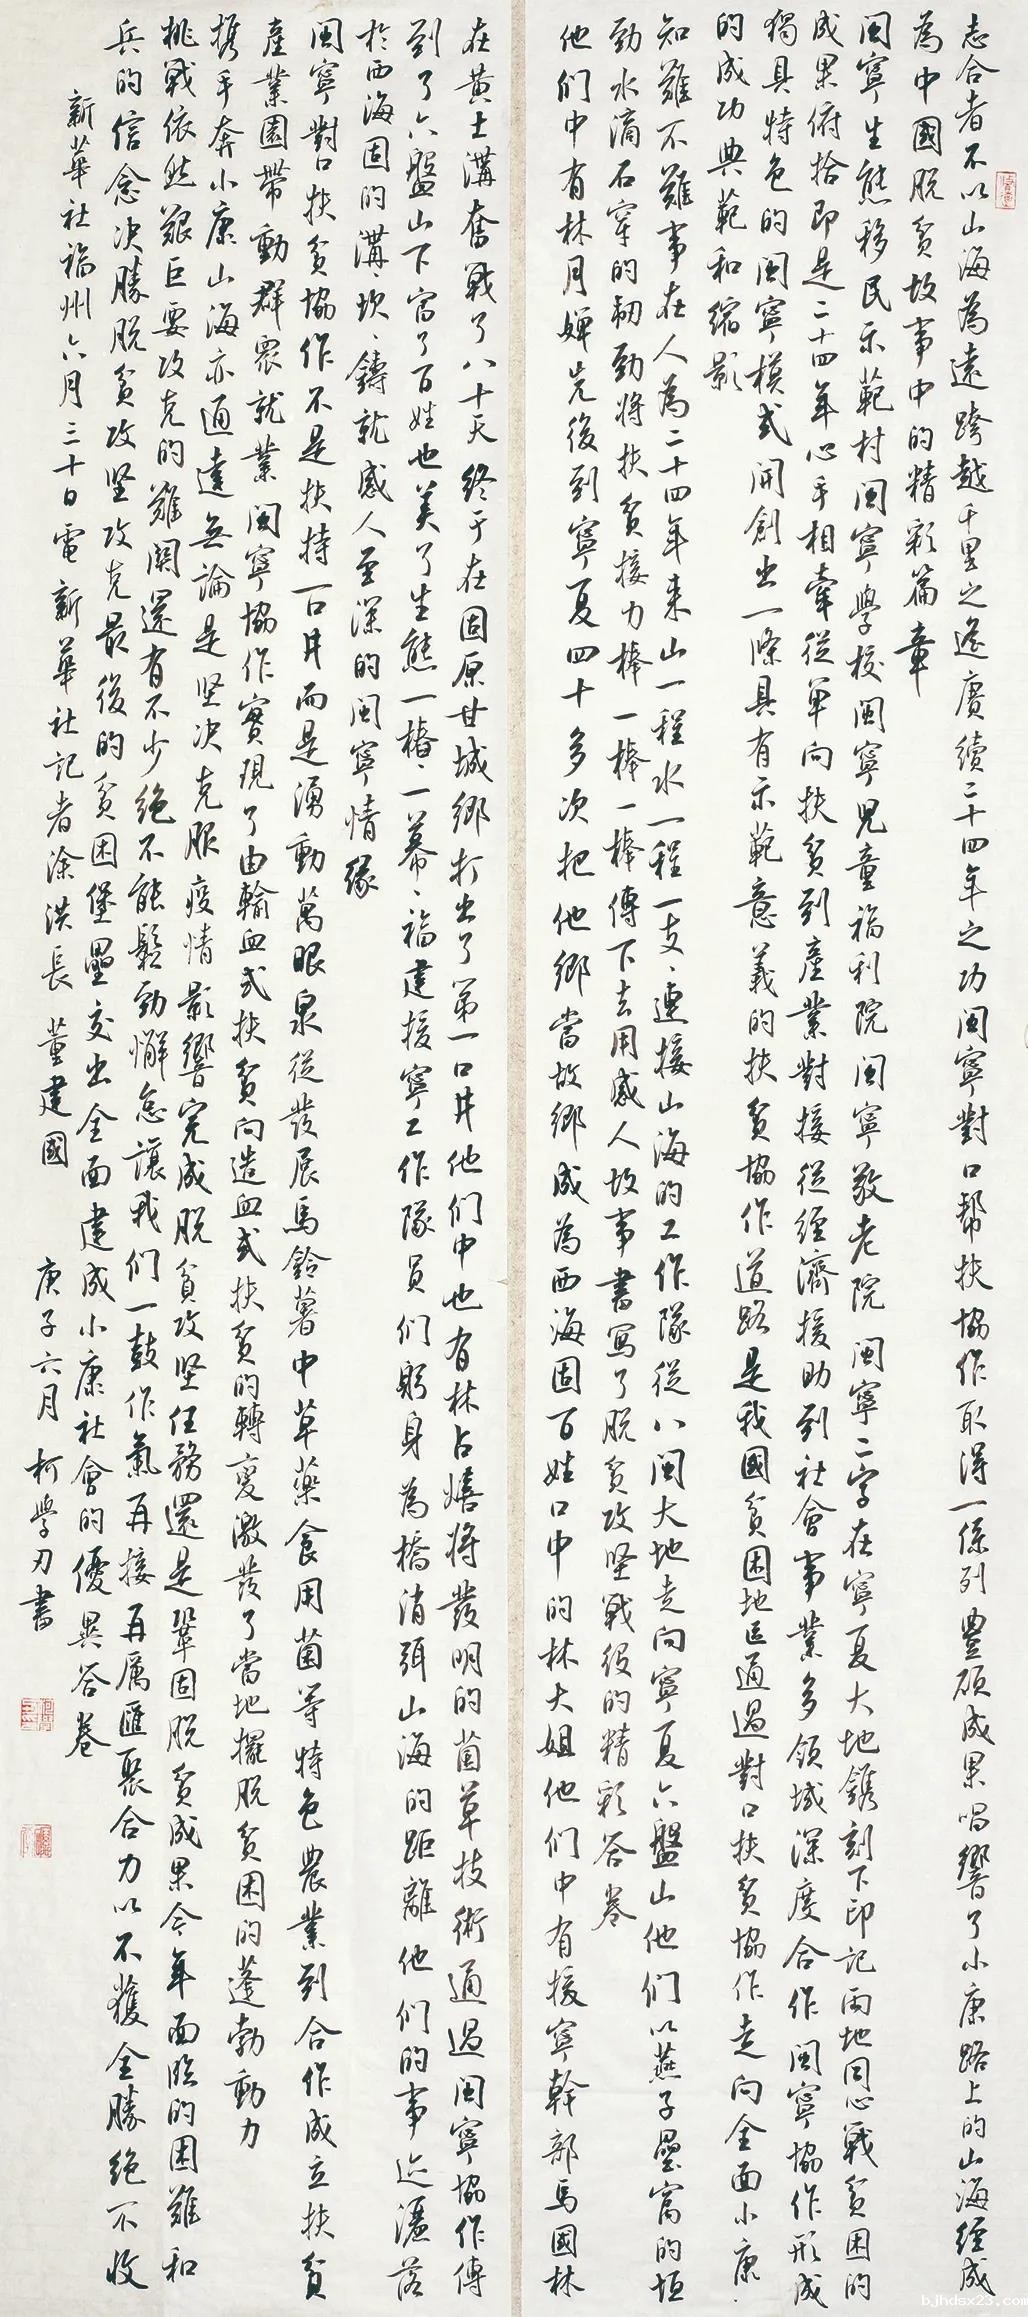 志合者不以山海為遠跨越千里之遙賡續二十四年之功閩寧對口幫扶協作取得一係列豐碩成果唱響了小康路上的山海經成
為中國脫貧故事中的精彩篇章
閩寧生態移民示範村閩寧學校閩寧兒童福利院閩寧敬老院閩寧二字在寧夏大地鐫刻下印記兩地同心戰貧困的
成果俯拾即是二十四年心手相牽從單向扶貧到產業對接從經濟援助到社會事業多領域深度合作閩寧協作形成
獨具特色的閩寧模式開創出一條具有示範意義的扶貧協作道路是我國貧困地區通過對口扶貧協作走向全面小康
的成功典範和縮影
知難不難事在人為二十四年來山一程水一程一支支連接山海的工作隊從八閩大地走向寧夏六盤山他們以燕子壘窩的恆
勁水滴石穿的韌勁將扶貧接力棒一棒一棒傳下去用感人故事書寫了脫貧攻堅戰役的精彩答卷
他們中有林月嬋先後到寧夏四十多次把他鄉當故鄉成為西海固百姓口中的林大姐他們中有援寧幹部馬國林
在黃土溝奮戰了八十天終于在固原甘城鄉打出了第一口井他們中也有林占熺將發明的菌草技術通過閩寧協作傳
到了六盤山下富了百姓也美了生態一樁樁一幕幕福建援寧工作隊員們躬身為橋消弭山海的距離他們的事迹灑落
於西海固的溝溝坎坎鑄就感人至深的閩寧情緣
閩寧對口扶貧協作不是扶持一口井而是湧動萬眼泉從發展馬鈴薯中草藥食用菌等特色農業到合作成立扶貧
產業園帶動群眾就業閩寧協作實現了由輸血式扶貧向造血式扶貧的轉變激發了當地擺脫貧困的蓬勃動力
携手奔小康山海亦通達無論是堅決克服疫情影響完成脫貧攻堅任務還是鞏固脫貧成果今年面臨的困難和
挑戰依然艱巨要攻克的難關還有不少絕不能鬆勁懈怠讓我們一鼓作氣再接再厲匯聚合力以不獲全勝絕不收
兵的信念決勝脫貧攻堅攻克最後的貧困堡壘交出全面建成小康社會的優異答卷
新華社福州六月三十日電新華社記者涂洪長 董建國
庚子六月 柯學刃書
bjhdsx23.com